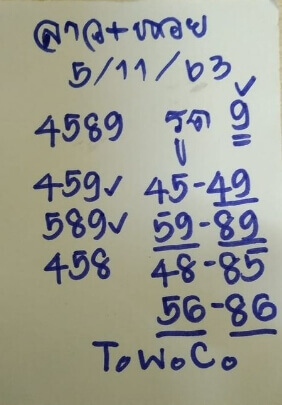 ลาว+หฺวย
5/11/63
4589 รูด 9✓
459✓ 45-49
589✓ 59-89
458 48-85
56-86
T.W.C.